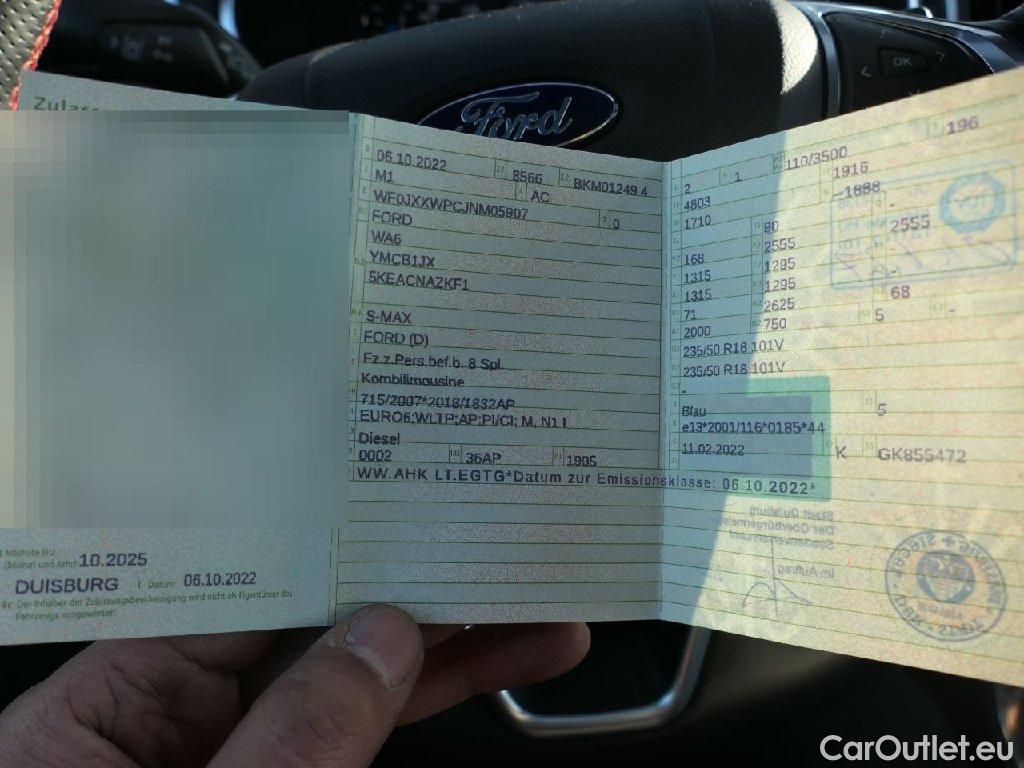 OK
Ford
Nächste HU
(Monat und Jahr) 10.2025
DUISBURG Datum: 06.10.2022
Der Inhaber der Zulassungsbescheinigung wird nicht als Eigentümer des
Fahrzeugs ausgewiesen.
06.10.2022 8566 BKM01249.4
M1 AC
WF0JXXWPCJNM05907 0
FORD
WA6
YMCB1JX
5KEACNAZKF1
S-MAX
FORD (D)
Fz.z.Pers.bef.b. 8 Spl.
Kombilimousine
715/2007*2018/1832AP
EURO6;WLTP;AP;PI/CI; M, N1 I
Diesel
0002 36AP 1995
WW.AHK LT.EGTG*Datum zur Emissionsklasse: 06.10.2022*
196
2 1 110/3500
4803 1916
1710 -1688 -
168 80 2555
1315 2555
1315 1295 -
71 1295 68
2000 2625 5 -
750
235/50 R18 101V
235/50 R18 101V
-
Blau 5
e13*2001/116*0185*44
11.02.2022 K GK855472
CarOutlet.eu